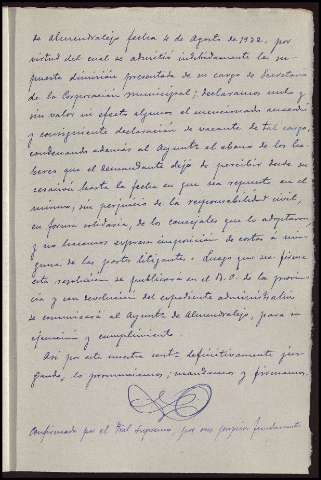 to de Almendralejo fecha 4 de Agosto de 1932, por
virtud del cual se admitió indebidamente la su-
puesta dimisión presentada de su cargo de Secretario
de la Corporación municipal; declaramos nulo y
sin valor ni efecto alguno el mencionado acuerdo
y consiguiente declaración de vacante de tal cargo,
condenando además al Ayuntº al abono de los ha-
beres que el demandante dejó de percibir desde su
cesación hasta la fecha en que sea repuesto en el
mismo, sin perjuicio de la responsabilidad civil,
en forma solidaria, de los concejales que lo adoptaron,
y no hacemos expresa imposición de costas a nin-
guna de las partes litigantes. Luego que sea firme
esta resolución se publicará en el B.O. de la provin-
cia y con devolución del expediente administrativo
se comunicará al Ayuntº de Almendralejo, para su
ejecución y cumplimiento.
Así por esta nuestra sentª definitivamente juz-
gando, lo pronunciamos, mandamos y firmamos.
Confirmada por el Tral Supremo, por sus propios fundamentos